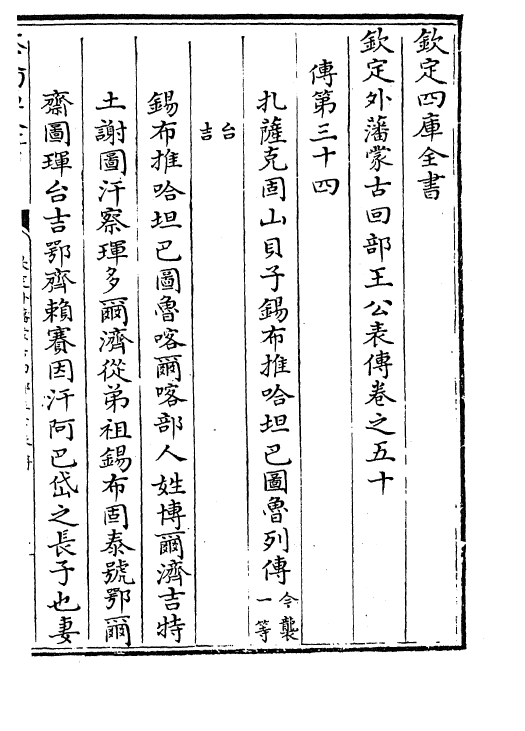 欽定四庫全書
欽定外藩蒙古回部王公表傳卷之五十
傳第三十四
扎薩克固山貝子錫布推哈坦巴圖魯列傳今襲一等
台吉
錫布推哈坦巴圖魯喀爾喀部人姓博爾濟吉特
土謝圖汗察琿多爾濟從弟祖錫布固泰號鄂爾
齋圖琿台吉鄂齊賴賽因汗阿巴岱之長子也妻